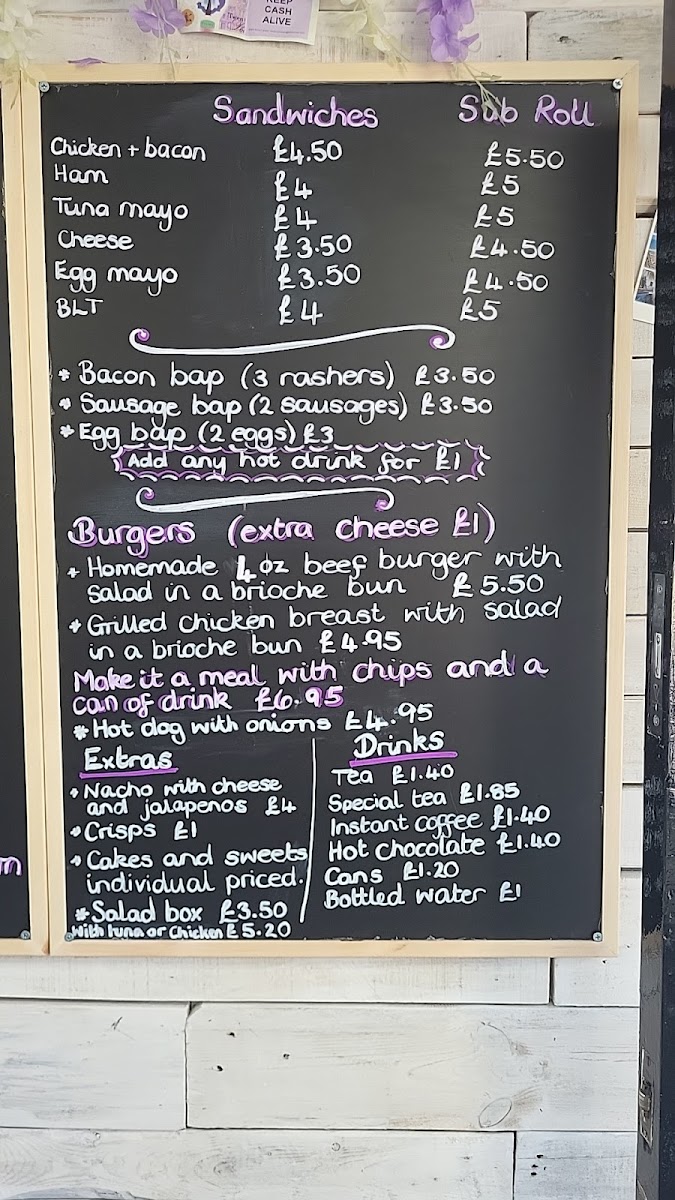 KEEP
CASH
ALIVE
Sandwiches Sub Roll
Chicken + bacon £4.50 £5.50
Ham £4 £5
Tuna mayo £4 £5
Cheese £3.50 £4.50
Egg mayo £3.50 £4.50
BLT £4 £5
* Bacon bap (3 rashers) £3.50
* Sausage bap (2 sausages) £3.50
* Egg bap (2 eggs) £3
Add any hot drink for £1
Burgers (extra cheese £1)
* Homemade 4oz beef burger with
salad in a brioche bun £5.50
* Grilled chicken breast with salad
in a brioche bun £4.95
Make it a meal with chips and a
can of drink £6.95
* Hot dog with onions £4.95
Extras
* Nacho with cheese
and jalapenos £4
* Crisps £1
* Cakes and sweets
individual priced.
* Salad box £3.50
with tuna or chicken £5.20
Drinks
Tea £1.40
Special tea £1.85
Instant coffee £1.40
Hot chocolate £1.40
Cans £1.20
Bottled water £1